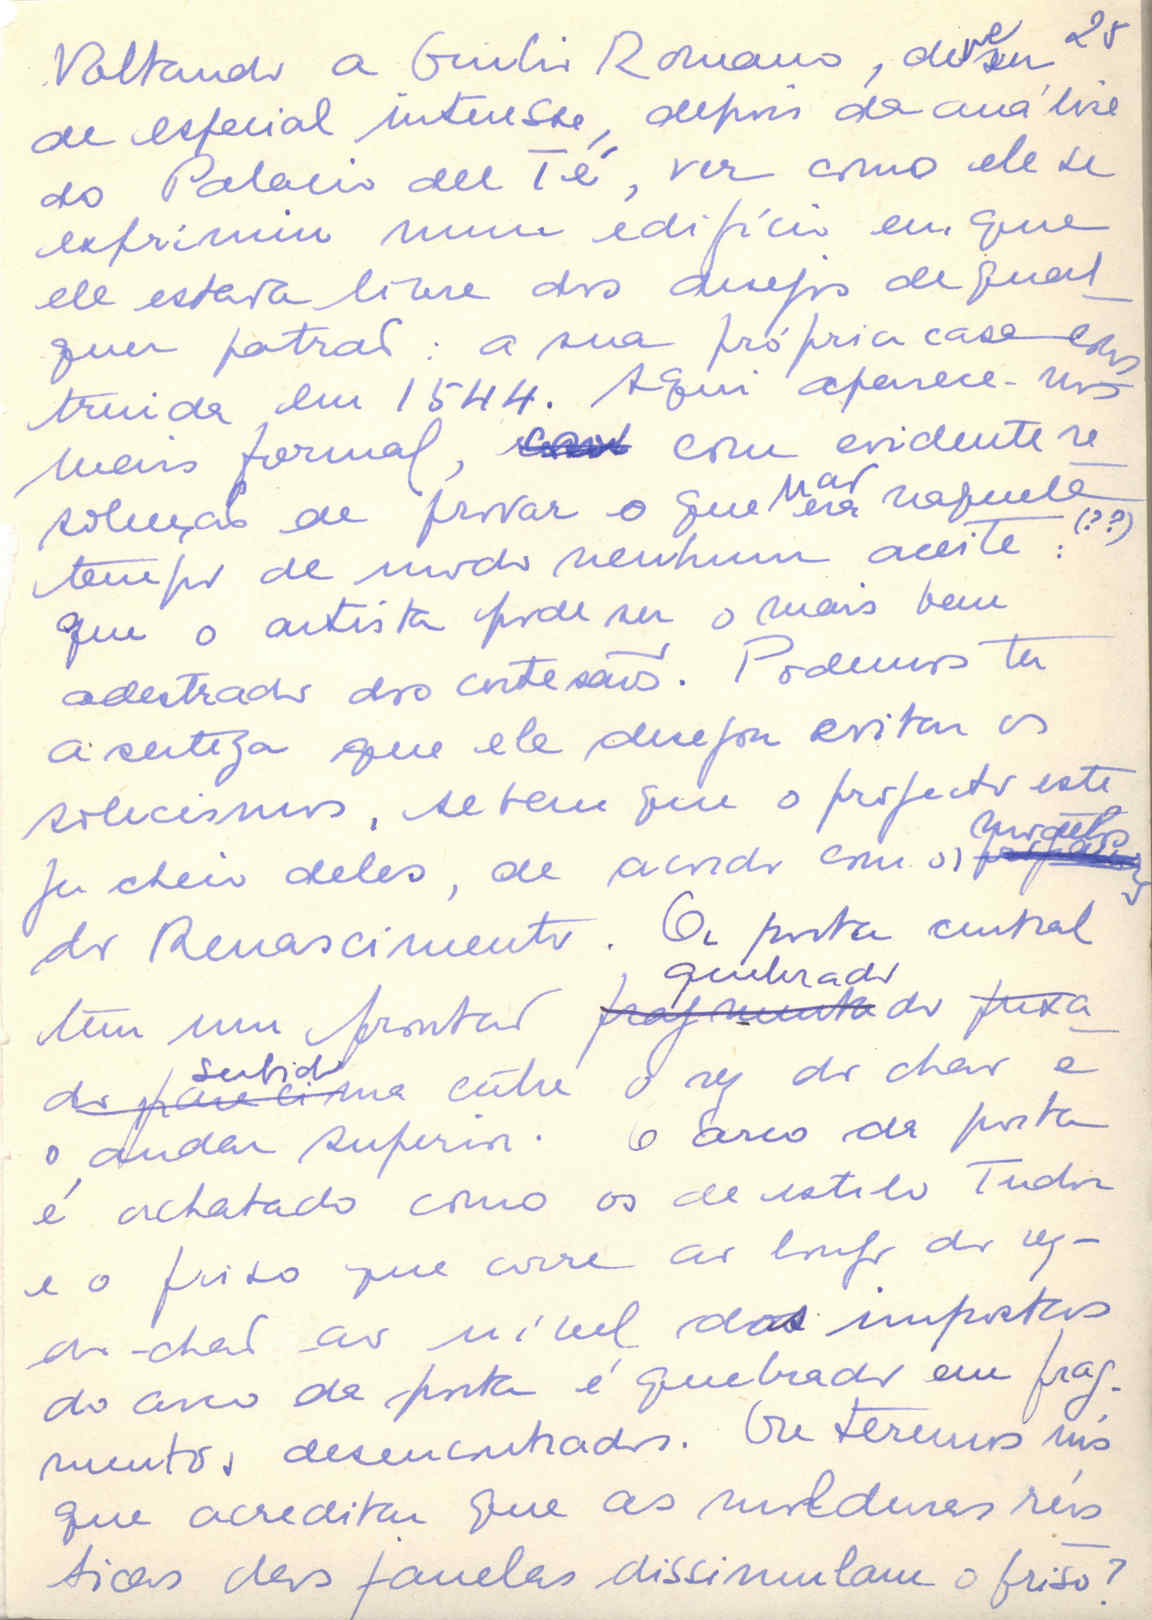 25
Voltando a Giulio Romano, deve ser
de especial interesse, depois da análise
do Palacio del Té, ver como ele se
exprimiu num edifício em que
ele estava livre dos desejos de qual
quer patrão: a sua própria casa cons
truida em 1544. Aqui aparece-nos
mais formal, com evidente re
solução de provar o que não era naquele
tempo de modo nenhum aceite: (??)
que o artista pode ser o mais bem
adestrado dos cortesãos. Podemos ter
a certeza que ele desejou evitar os
solecismos, se bem que o projecto este
ja cheio deles, de acordo com os modelos
do Renascimento. A porta central
tem um frontão quebrado puxa
do subido entre o rez do chão e
o andar superior. O arco da porta
é achatado como os de estilo Tudor
e o friso que corre ao longo do rez-
do-chão ao nível das impostas
do arco da porta é quebrado em frag-
mentos desencontrados. Ou teremos nós
que acreditar que as molduras rús
ticas das janelas dissimulam o friso?